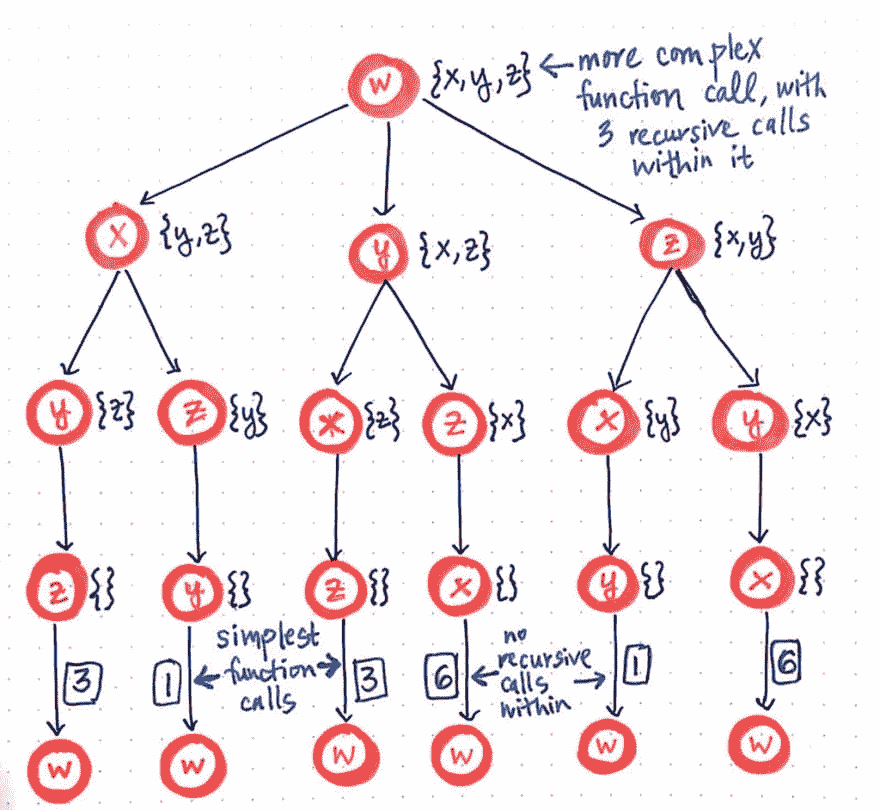 w {x,y,z} ← more complex
function call, with
3 recursive calls
within it
x {y,z} y {x,z} z {x,y}
y {z} z {y} x {z} z {x} x {y} y {x}
z {} y {} z {} x {} y {} x {}
simplest
← function →
calls
no
← recursive
calls →
within
3 1 3 6 1 6
w w w w w w